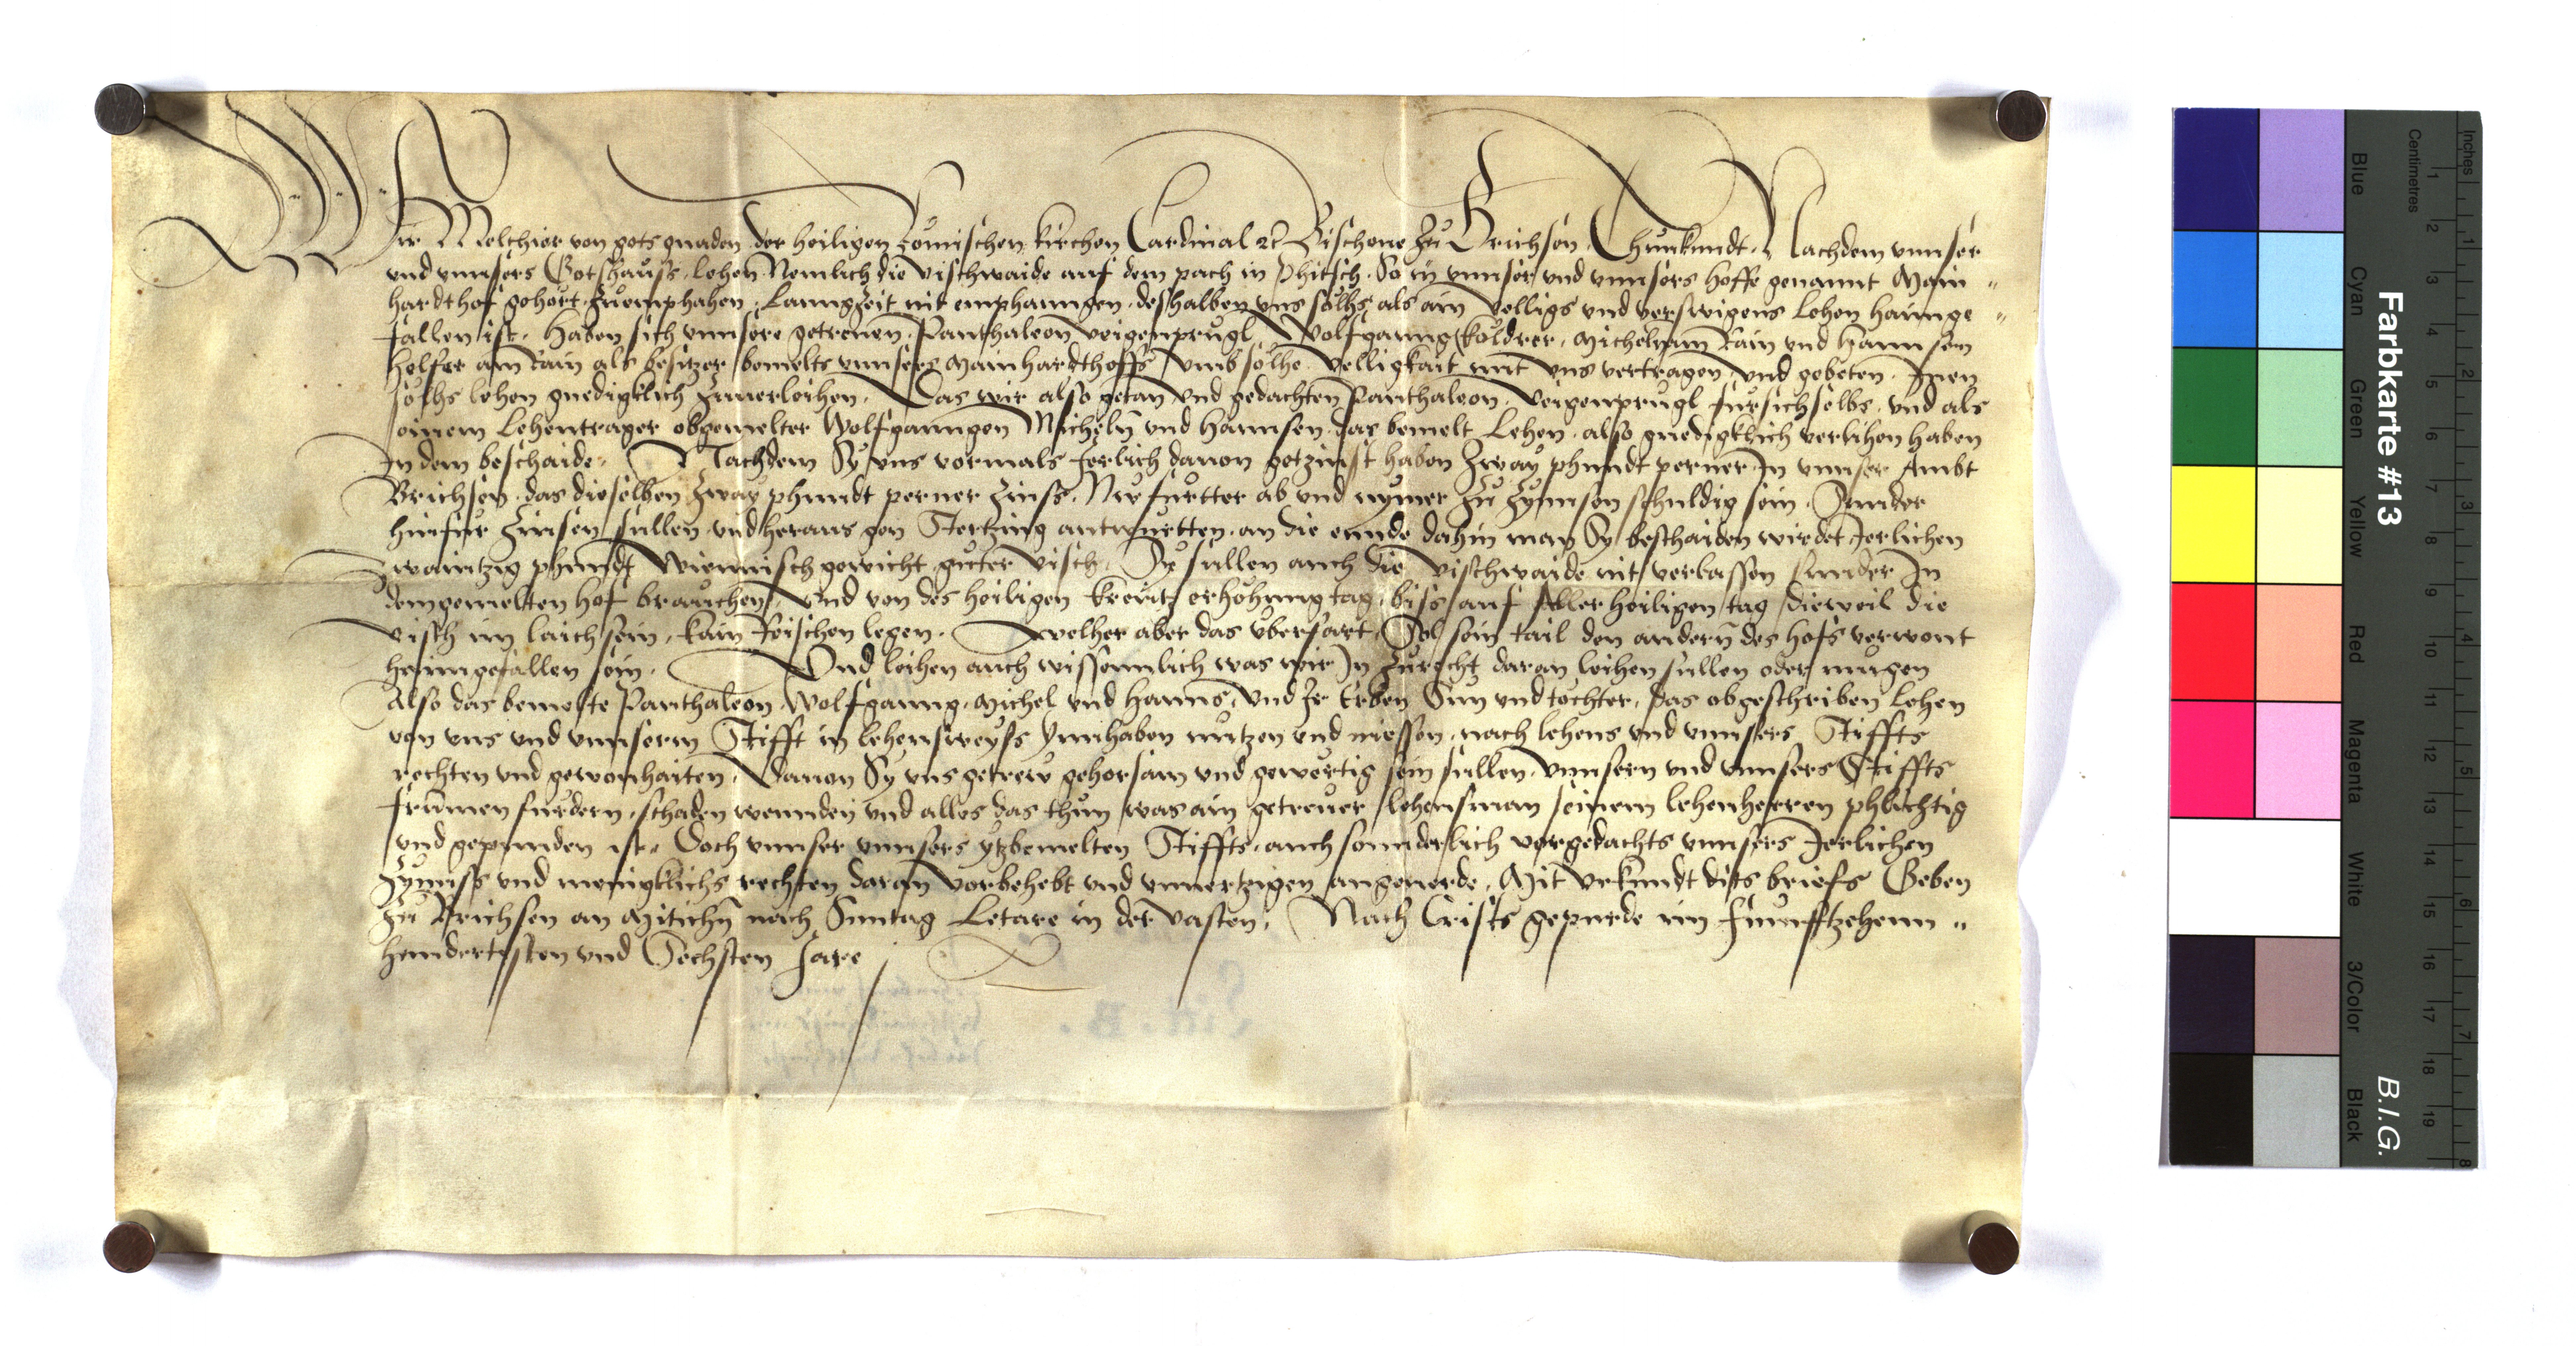 Wir Melchior von gots gnaden der heiligen Römischen kirchen Cardinal etc Bischove zu Brichsen Thun kundt. Nachdem unnser
und unnsers Gotshauss lehen Nemlich die vischwaide auf dem pach in Phitsch. So in unnser und unnsers hoffe genannt Main„
hardthof gehört. zu emphahen. Lanngzeit nit emphanngen. deshalben uns sölhs als ain velligs und verswigens Lehen haimge„
fallen ist. Haben sich unnsere getreuen. Panthaleon veigenprugl Wolfganng Köldrer. Michel am Rain und Hannsen
Helfer am Rain als besitzer bemelts unnsers Mainhardthoffs umb sölhe velligkait mit uns vertragen und gebeten. Inen
sölhs lehen gnedigklich zuverleihen. Das wir also getan und gedachten Panthaleon veigenprugl für sich selbs. und als
einem Lehentrager obgemelter Wolfganngen Micheln und Hannsen das bemelt Lehen. also gnedigklich verlihen haben
In dem beschaide. Nachdem Sy uns vormals Jerlich davon getzinst haben zway phundt perner In unnser Ambt
Brichsen. das dieselben zway phundt perner zinss. Nu fürtter ab und nymer zu zynnsen schuldig sein. Sunder
hinfür zinsen sullen und heraus gen Stertzing antwurtten. an die ennde dahin man Sy beschaiden wirdet Jerlichen
zwaintzig phundt Wiennisch gewicht guter visch. Sy sullen auch die vischwaide nit verlassen sunder In
dem gemelten hof brauchen. und von des heiligen kreutz erhöhung tag. biss auf Aller heiligen tag dieweil die
visch im laich sein. kain Reischen legen. Welher aber das überfart. Sol sein tail den andern des hofs verwont
heimgefallen sein. Und leihen auch wissennlich was wir In zurecht daran leihen sullen oder mugen
Also das bemelte Panthaleon Wolfganng. Michel und Hanns, und Ir Erben Sun und töchter. das obgeschriben Lehen
von uns und unnserm Stifft in lehensweyss Ynnhaben nützen und niessen. nach lehens und unnsers Stiffts
rechten und gewonhaiten. Davon Sy uns getrew gehorsam und gewertig sein sullen. unnsern und unnsers Stiffts
frumen fürdern. schaden wennden und alles das thun was ain getreuer lehensman seinem lehenherren phlichtig
und gepunden ist. Doch unnser unnsers ytzbemelten Stiffts. auch sonnderlich vorgedachts unnsers Jerlichen
Zynnss und menigklichs rechten daran vorbehebt und unvertzigen angeverde. Mit urkundt dits briefs Geben
zu Brichsen an Mitichn nach Sunntag Letare in der Vasten. Nach Crists gepurde im Funfftzehenn„
hundertisten und Sechsten Jare
Lit. B.
Farbkarte #13
B.I.G.
Blue
Cyan
Green
Yellow
Red
Magenta
White
3/Color
Black
Centimetres
Inches
1 2 3 4 5 6 7 8 9 10 11 12 13 14 15 16 17 18 19
1 2 3 4 5 6 7 8